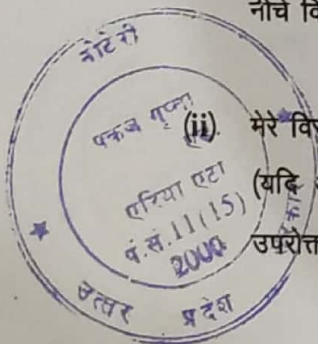 नीचे
नोटरी
पंकज गुप्ता
(ii). मेरे
एरिया एटा
(यदि
पं.सं.11(15)
2000
उपरोक्त
उत्तर प्रदेश